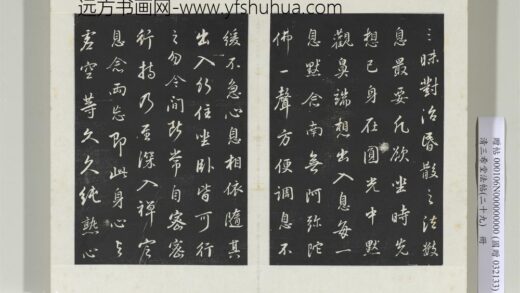 远方书画网- www.yfshuhua.com
三昧對治昏散之法數
息最要凡欲坐時先
想己身在圓光中默
觀鼻端想出入息每一
息默念南無阿弥陀
佛一聲方便調息不
緩不急心息相依隨其
出入行住坐卧皆可行
之勿令間斷常自密密
行持乃至深入禪定
息念兩忘即此身心與
虛空等久久純熟心
贈帖 000106N000000000 (國贈 032133)
清三希堂法帖(二十九) 冊